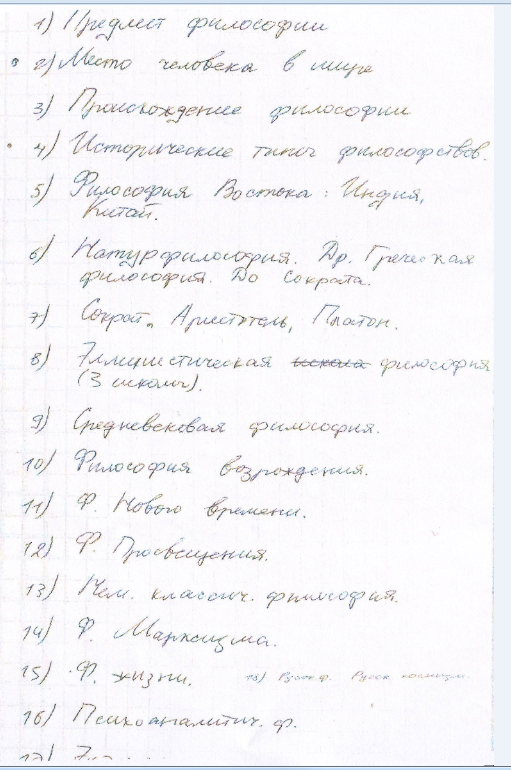 1) Предмет философии
2) Место человека в мире
3) Происхождение философии
4) Исторические типы философствов.
5) Философия Востока: Индия,
Китай.
6) Натурфилософия. Др. Греческая
философия. До Сократа.
7) Сократ, Аристотель, Платон.
8) Эллинистическая школа философия
(3 школы).
9) Средневековая философия.
10) Философия возрождения.
11) Ф. Нового времени.
12) Ф. Просвещения.
13) Нем. классич. философия.
14) Ф. Марксизма.
15) Ф. жизни. 18) Русск ф. Русск космизм.
16) Психоаналитич. ф.
17)